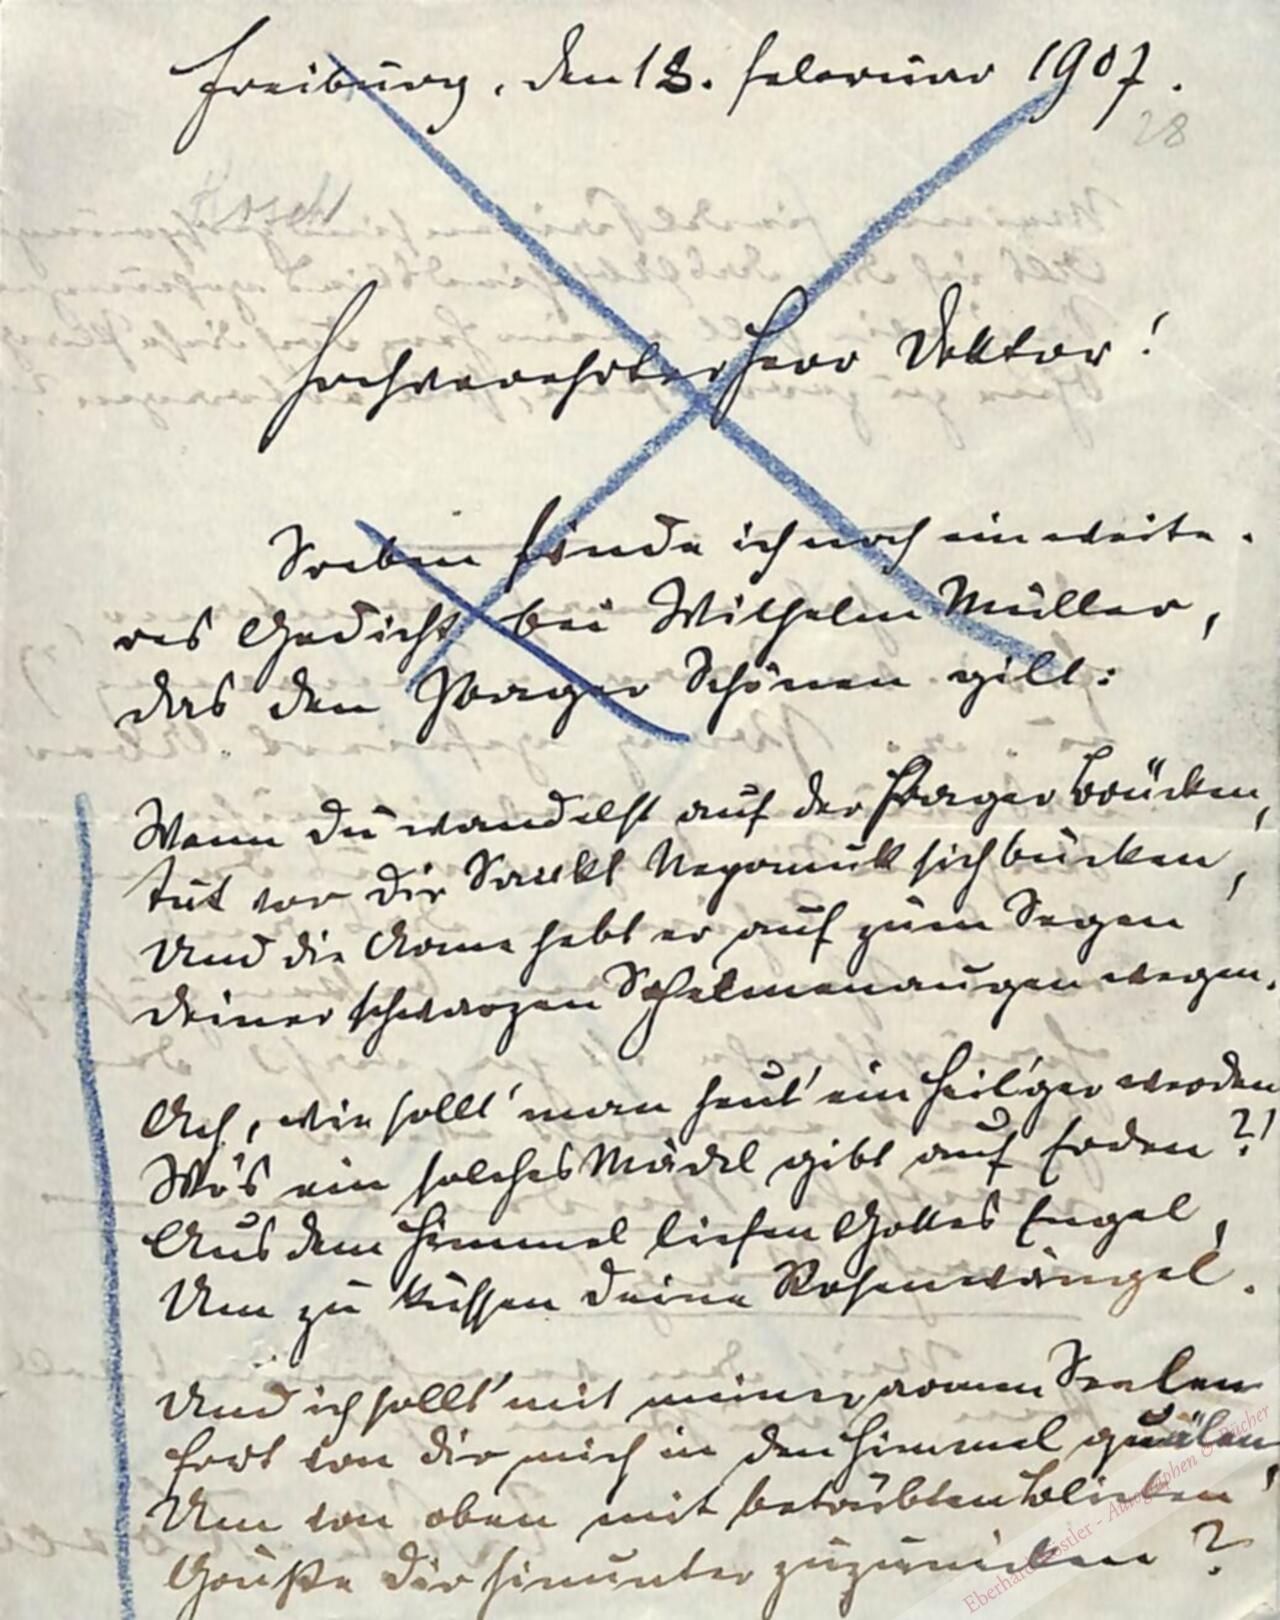 Freiburg, den 18. Februar 1907.
28
Hochverehrter Herr Doktor!
Soeben finde ich noch ein weite-
res Gedicht bei Wilhelm Müller,
das den Prager Schönen gilt:
Wenn du wandelst auf der Prager Brücken,
Tut vor dir Sankt Nepomuk sich bücken,
Und die Arme hebt er auf zum Segen
Deiner schwarzen Schelmenaugen wegen.
Ach, wie sollt' man heut' ein Heil'ger werden
Wo's ein solches Mädel gibt auf Erden?!
Aus dem Himmel liefen Gottes Engel,
Um zu küssen deine Rosenwängel.
Und ich sollt' mit meiner armen Seelen
Fort von dir mich in den Himmel quälen,
Um von oben mit betrübten Blicken
Grüße dir hinunter zuzunicken?
Eberhard Köstler - Autographen & Bücher